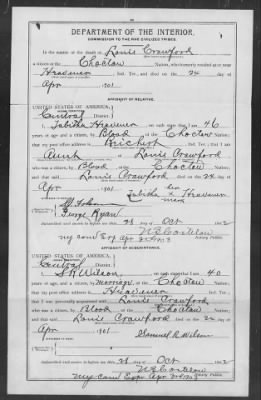 DEPARTMENT OF THE INTERIOR.
COMMISSION TO THE FIVE CIVILIZED TRIBES.
In the matter of the death of Louis Crawford
a citizen of the Choctaw Nation, who formerly resided at or near
Ind. Ter., and died on the 24 day of
Apr 1901
AFFIDAVIT OF RELATIVE.
UNITED STATES OF AMERICA,
Central District
I, Tabitha on oath state that I am 46
years of age and a citizen, by Blood of the Choctaw Nation;
that my post office address is Ind. Ter; that I am
Aunt of Louis Crawford
who was a citizen, by Blood of the Choctaw Nation;
and that said Louis Crawford died on the 24 day of
Apr 1901
her
Tabitha x
mark
George Ryan
Subscribed and sworn to before me this 28 day of Oct 1902
Notary Public.
my com Exp Apr
AFFIDAVIT OF ACQUAINTANCE.
UNITED STATES OF AMERICA,
Central District
I, S R Wilson, on oath state that I am 40
years of age, and a citizen, by Marriage of the Choctaw Nation;
that my post office address is Ind. Ter.;
that I was personally acquainted with Louis Crawford
who was a citizen, by Blood of the Choctaw Nation;
and that said Louis Crawford died on the 24 day of
Apr 1901
Samuel R Wilson
Subscribed and sworn to before me this 28 day of Oct 1902
Notary Public.
my com Exp Apr